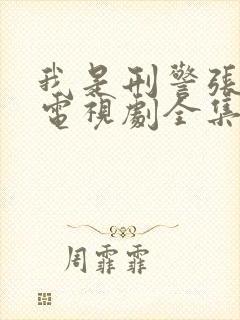 我是刑警張
電視劇全集
周霏霏